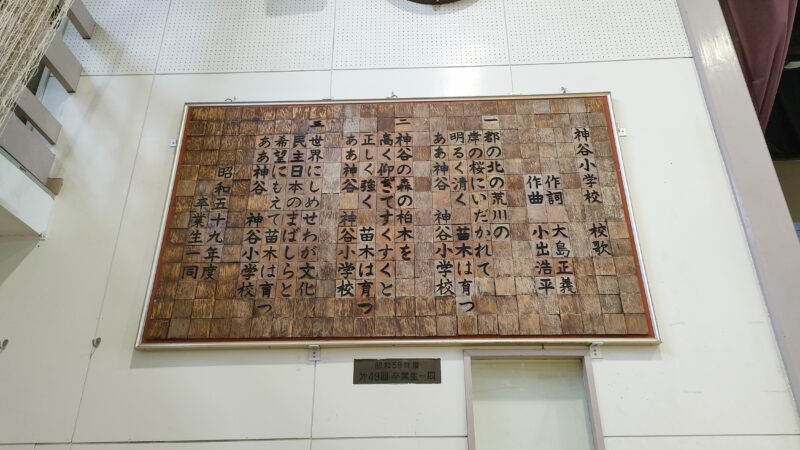 神谷小学校 校歌
作詞 大島正義
作曲 小出浩平
一 都の北の荒川の
岸の桜にいだかれて
明るく清く 苗木は育つ
ああ神谷 神谷小学校
二 神谷の森の柏木を
高く仰ぎてすくすくと
正しく強く 苗木は育つ
ああ神谷 神谷小学校
三 世界にしめせわが文化
民主日本のまばしらと
希望にもえて苗木は育つ
ああ神谷 神谷小学校
昭和五十九年度
卒業生一同
昭和59年度
第49回 卒業生一同